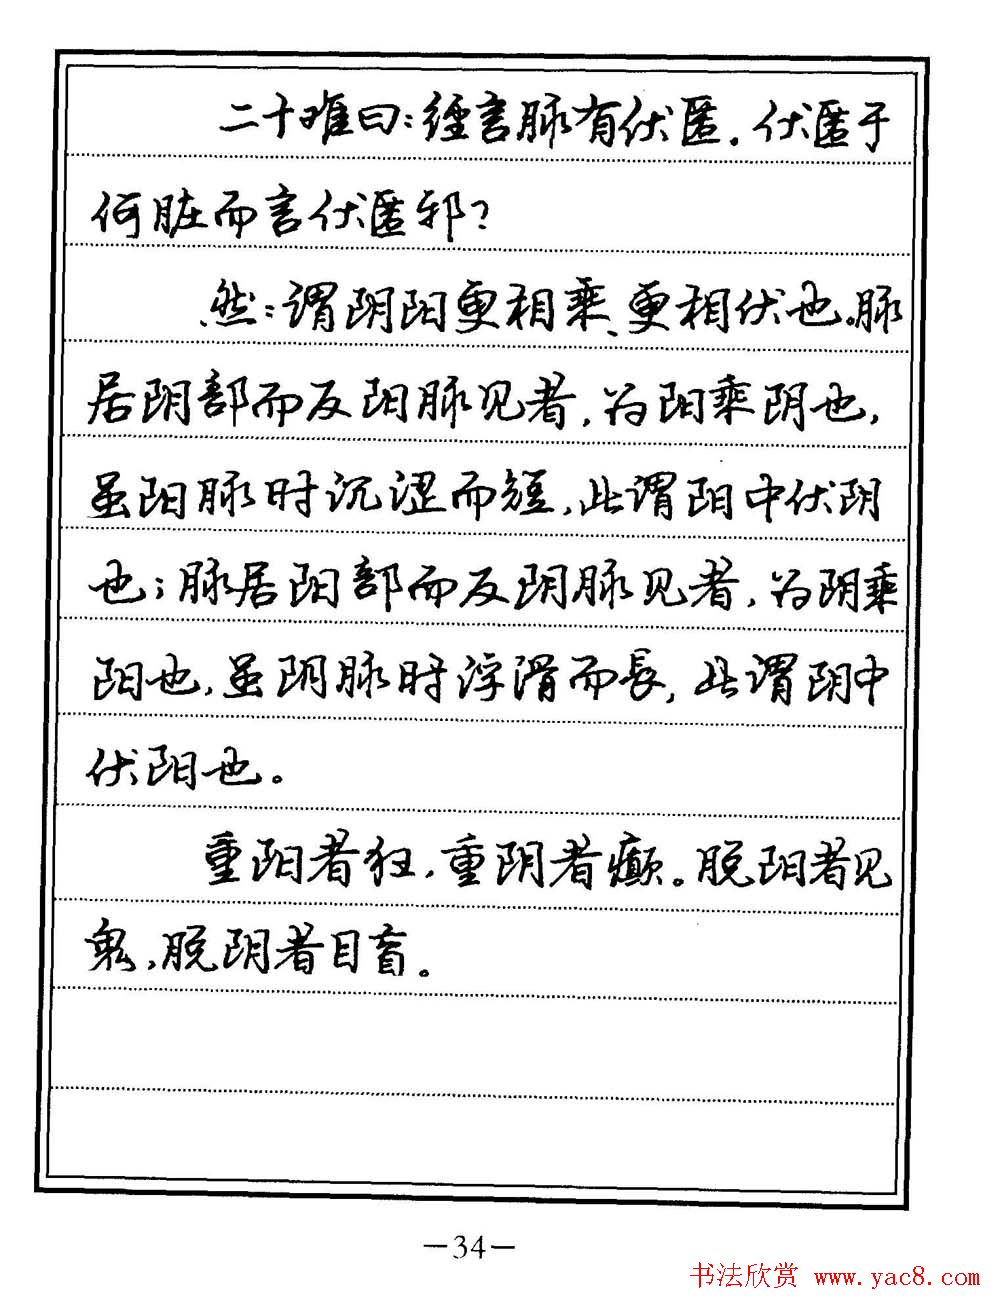 二十难曰：经言脉有伏匿。伏匿于
何脏而言伏匿邪？
然：谓阴阳更相乘、更相伏也。脉
居阴部而反阳脉见者，为阳乘阴也，
虽阳脉时沉涩而短，此谓阳中伏阴
也；脉居阳部而反阴脉见者，为阴乘
阳也，虽阴脉时浮滑而長，此谓阴中
伏阳也。
重阳者狂，重阴者癫。脱阳者见
鬼，脱阴者目盲。
－34－
书法欣赏 www.yac8.com